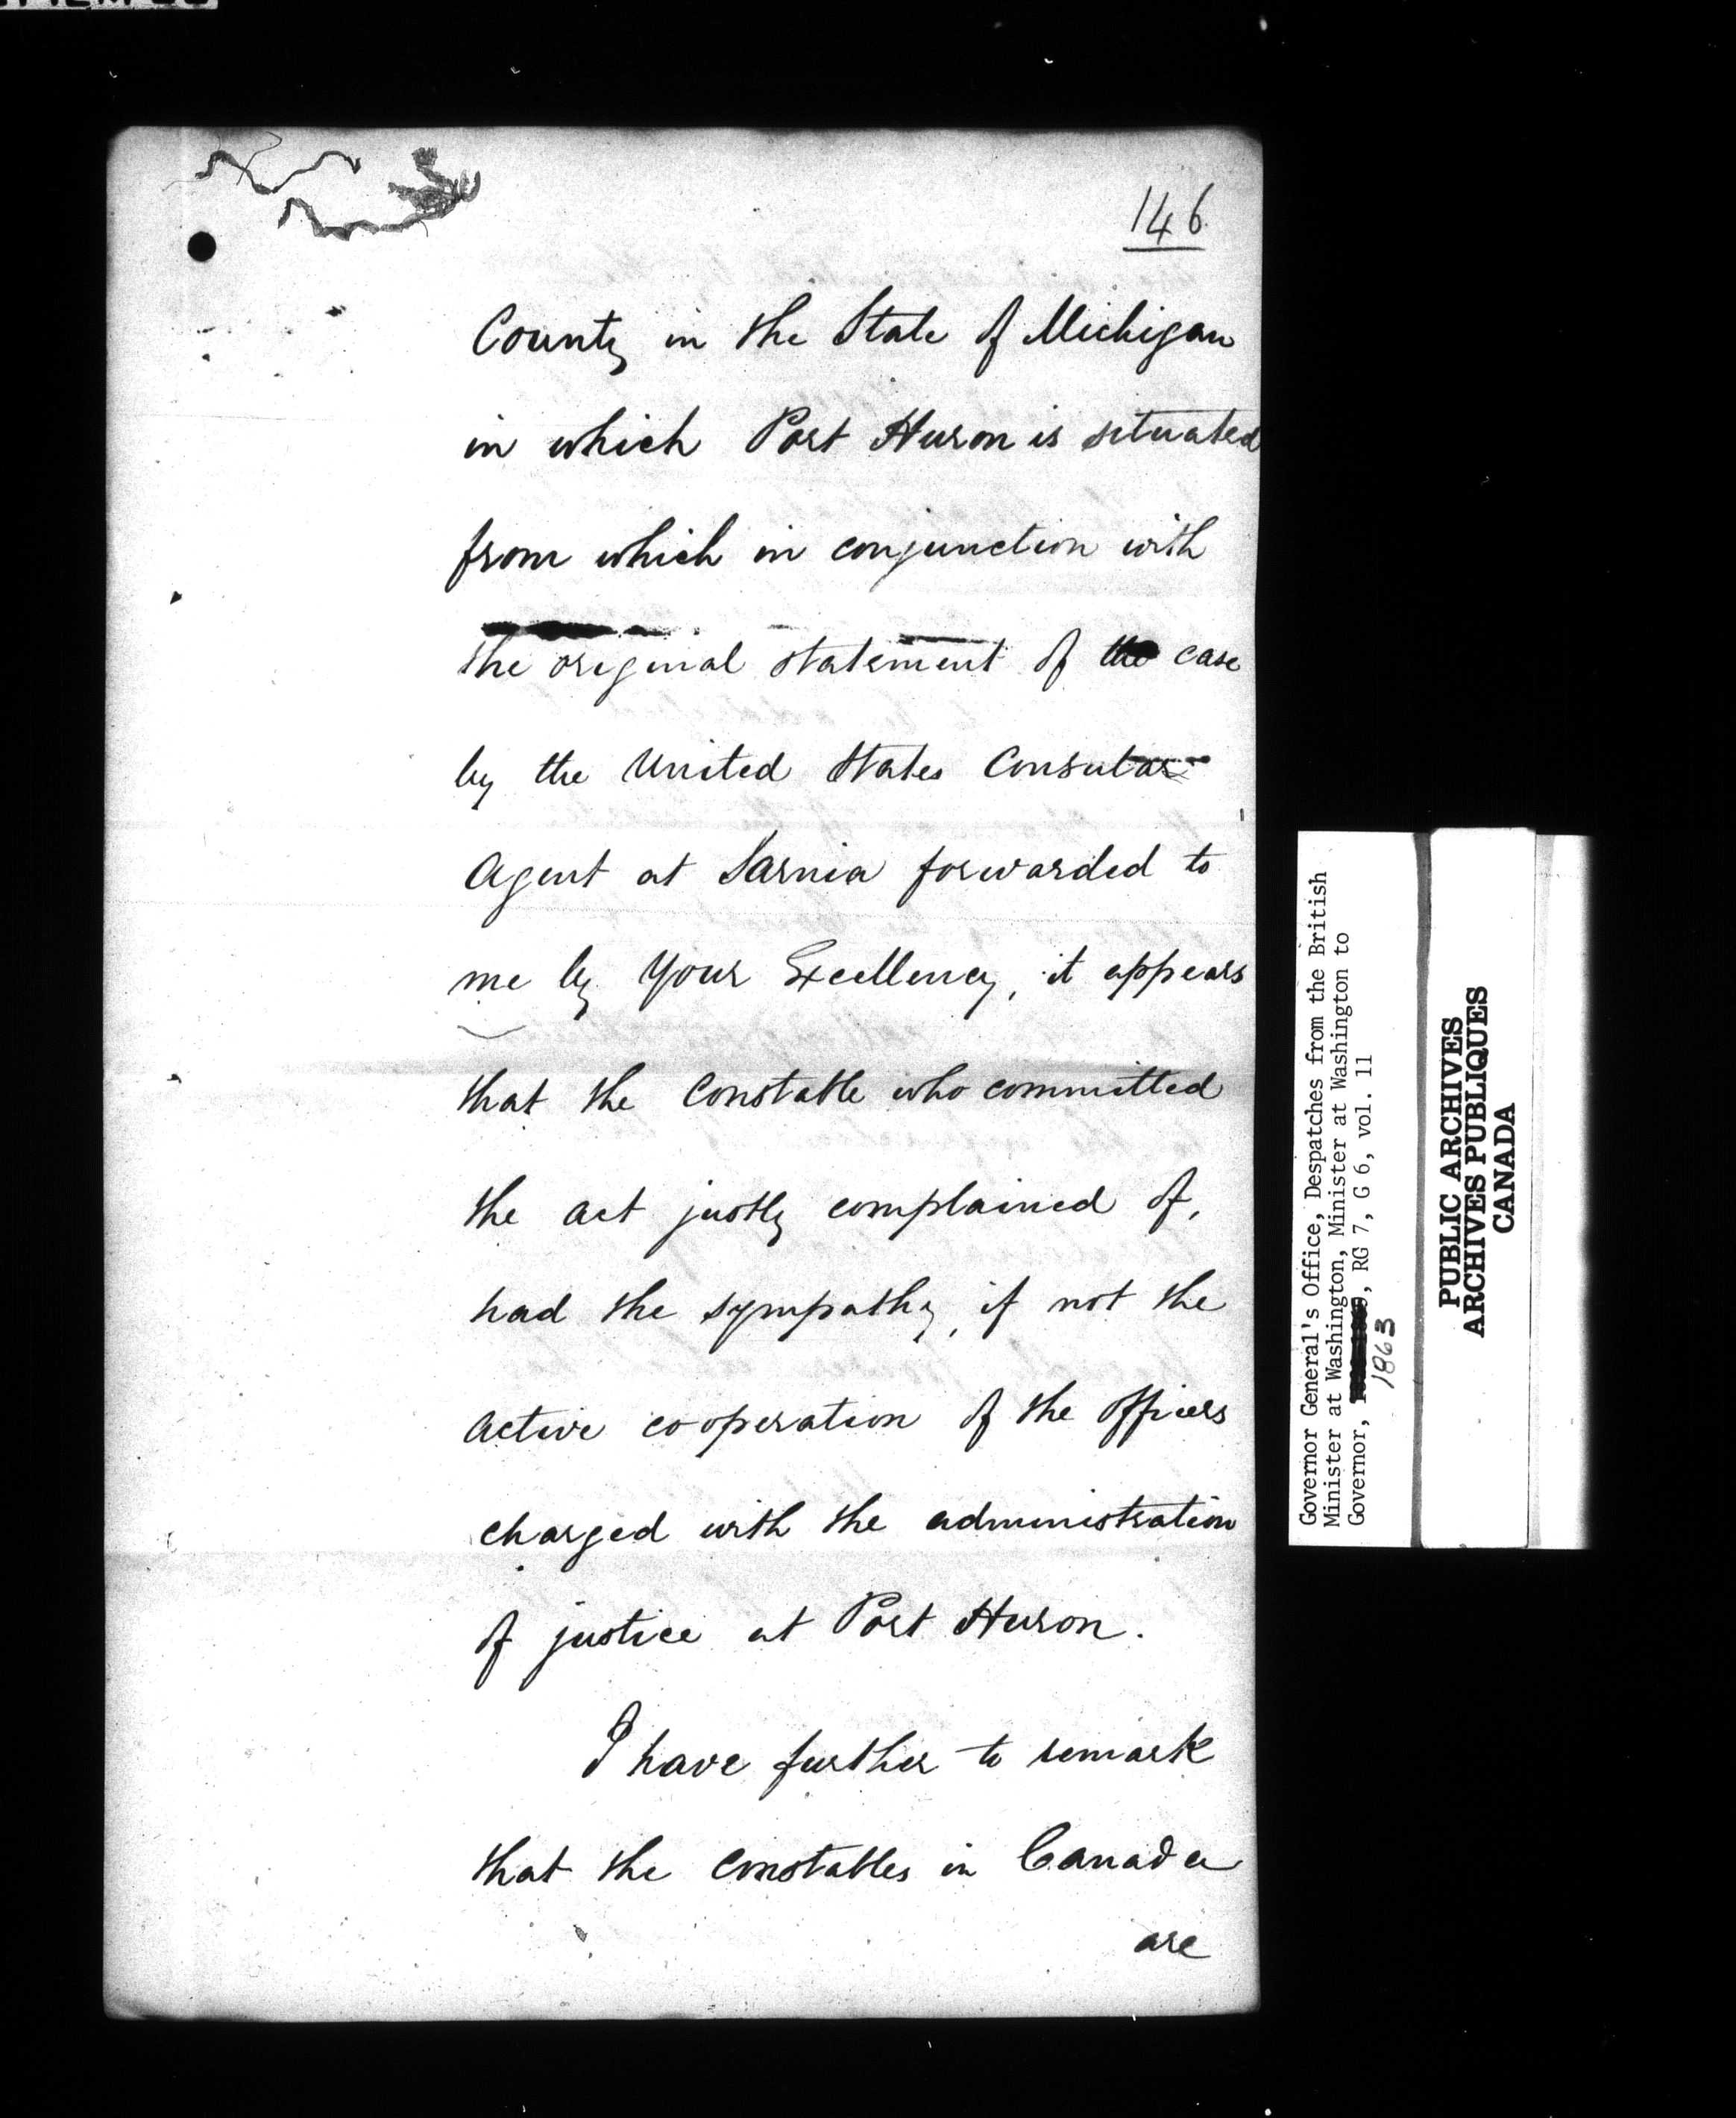 146
County in the State of Michigan
in which Port Huron is situated
from which in conjunction with
the original statement of the case
by the United States Consular
Agent at Sarnia forwarded to
me by Your Excellency, it appears
that the Constable who committed
the act justly complained of,
had the sympathy, if not the
active cooperation of the officers
charged with the administration
of justice at Port Huron.
I have further to remark
that the constables in Canada
are
Governor General's Office, Despatches from the British
Minister at Washington, Minister at Washington to
Governor, , RG 7, G 6, vol. 11
1863
PUBLIC ARCHIVES
ARCHIVES PUBLIQUES
CANADA